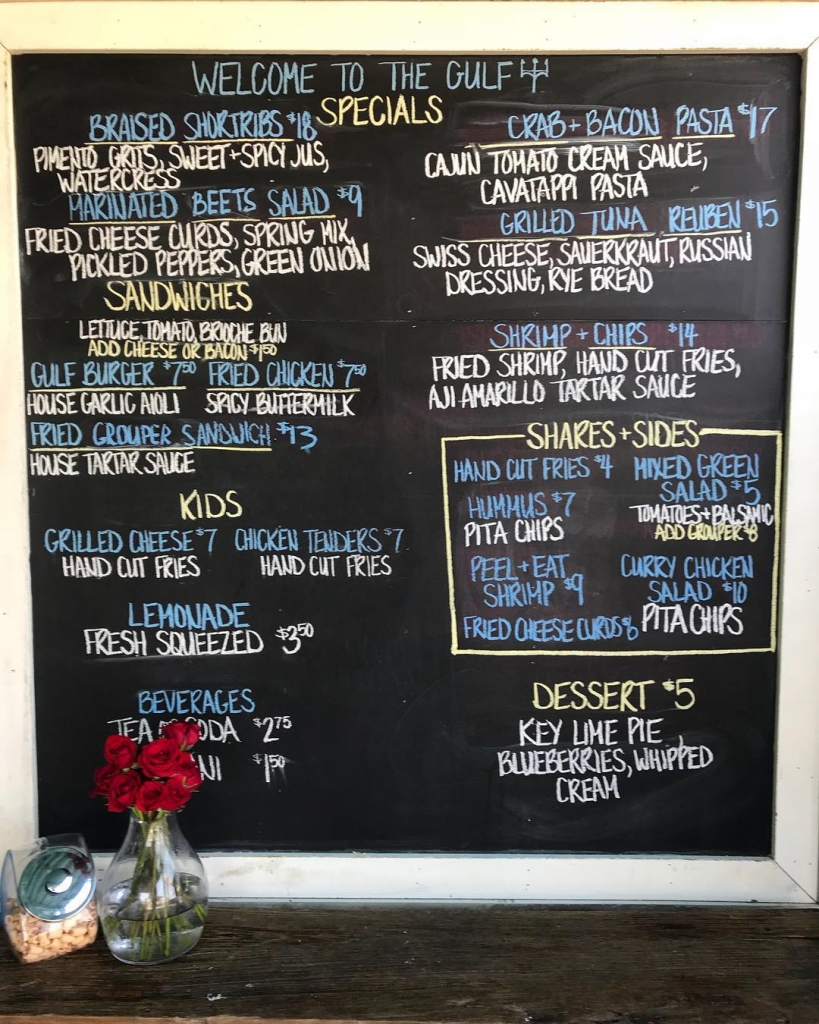 WELCOME TO THE GULF
SPECIALS
BRAISED SHORTRIBS $18
PIMENTO GRITS, SWEET+SPICY JUS,
WATERCRESS
MARINATED BEETS SALAD $9
FRIED CHEESE CURDS, SPRING MIX,
PICKLED PEPPERS, GREEN ONION
CRAB + BACON PASTA $17
CAJUN TOMATO CREAM SAUCE,
CAVATAPPI PASTA
GRILLED TUNA REUBEN $15
SWISS CHEESE, SAUERKRAUT, RUSSIAN
DRESSING, RYE BREAD
SHRIMP + CHIPS $14
FRIED SHRIMP, HAND CUT FRIES,
AJI AMARILLO TARTAR SAUCE
SANDWICHES
LETTUCE, TOMATO, BRIOCHE BUN
ADD CHEESE OR BACON $1.50
GULF BURGER $7.50 FRIED CHICKEN $7.50
HOUSE GARLIC AIOLI SPICY BUTTERMILK
FRIED GROUPER SANDWICH $13
HOUSE TARTAR SAUCE
KIDS
GRILLED CHEESE $7 CHICKEN TENDERS $7
HAND CUT FRIES HAND CUT FRIES
LEMONADE
FRESH SQUEEZED $3.50
BEVERAGES
TEA SODA $2.75
$1.50
SHARES + SIDES
HAND CUT FRIES $4
HUMMUS $7
PITA CHIPS
PEEL + EAT
SHRIMP $9
FRIED CHEESE CURDS $8
MIXED GREEN
SALAD $5
TOMATOES + BALSAMIC
ADD GROUPER $8
CURRY CHICKEN
SALAD $10
PITA CHIPS
DESSERT $5
KEY LIME PIE
BLUEBERRIES, WHIPPED
CREAM